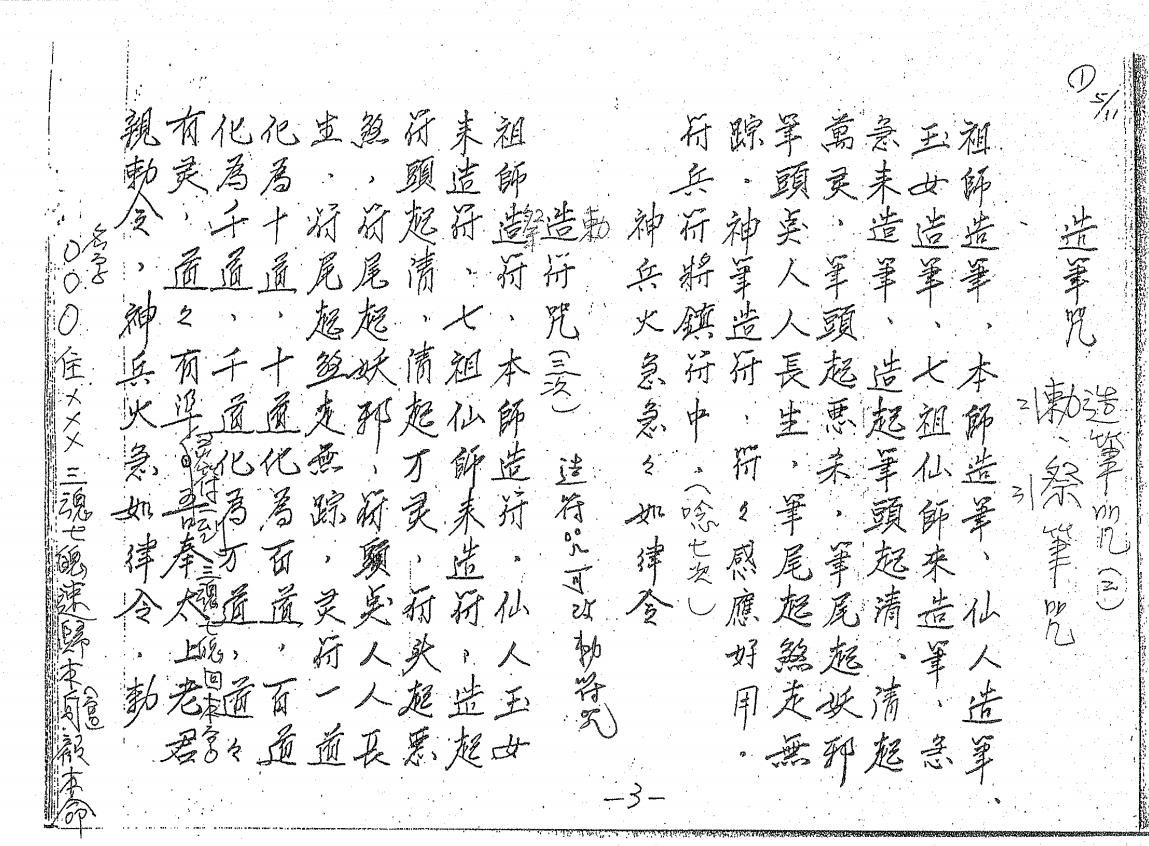 ① 5/11
造筆咒
造筆咒(二)
2)勅、
3)祭筆咒
祖師造筆、本師造筆、仙人造筆、
玉女造筆、七祖仙師來造筆、急
急来造筆、造起筆頭起清、清起
萬灵、筆頭起悪杀、筆尾起妖邪
筆頭矣人人長生、筆尾起煞走無
踪、神筆造符、符々感應好用。
符兵符將鎮符中、(唸七次)
神兵火急急々如律令
勅
造符咒(三次) 造符咒可改勅符咒
祭
祖師造符、本師造符、仙人玉女
来造符、七祖仙師来造符、造起
符頭起清、清起才灵、符头起悪
煞、符尾起妖邪、符頭矣人人長
生、符尾起煞走無踪、灵符一道
化為十道、十道化為百道、百道
化為千道、千道化為万道、道々
有灵、道々有準、吾奉太上老君
三魂七魄回本宫
親勅令、神兵火急如律令、勅
〇〇〇住×××三魂七魄速歸本身顧本命
(宫)
-3-